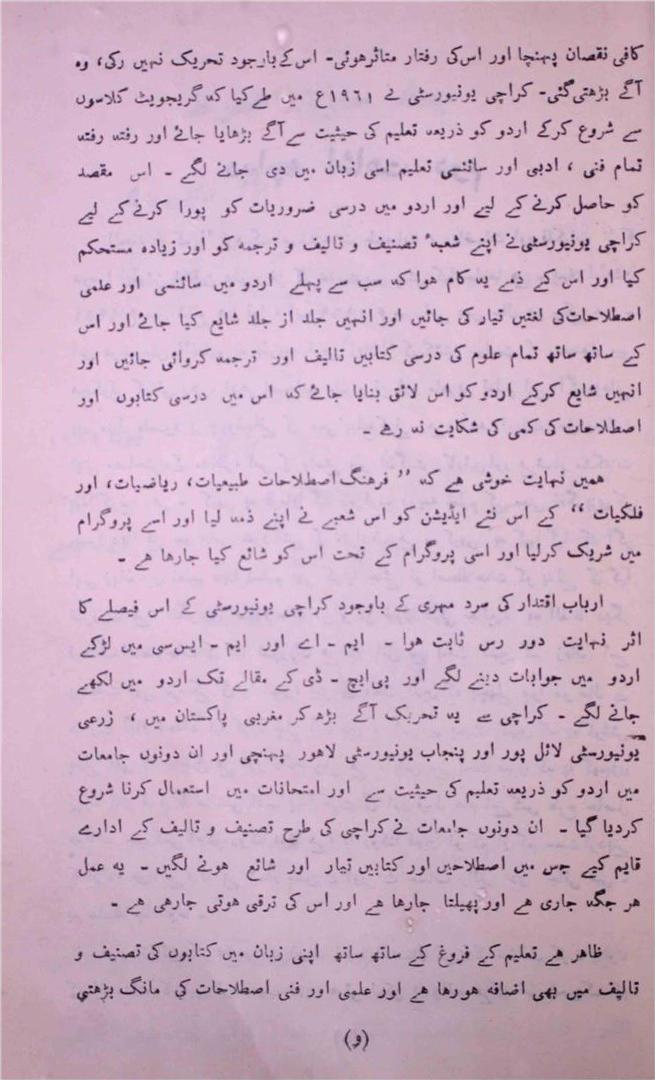 کافی نقصان پہنچا اور اس کی رفتار متاثر ہوئی - اس کے باوجود تحریک نہیں رکی، وہ
آگے بڑھتی گئی - کراچی یونیورسٹی نے ١٩٦١ ع میں طے کیا کہ گریجویٹ کلاسوں
سے شروع کرکے اردو کو ذریعہ تعلیم کی حیثیت سے آگے بڑھایا جائے اور رفتہ رفتہ
تمام فنی ، ادبی اور سائنسی تعلیم اسی زبان میں دی جانے لگے - اس مقصد
کو حاصل کرنے کے لیے اور اردو میں درسی ضروریات کو پورا کرنے کے لیے
کراچی یونیورسٹی نے اپنے شعبۂ تصنیف و تالیف و ترجمہ کو اور زیادہ مستحکم
کیا اور اس کے ذمے یہ کام ہوا کہ سب سے پہلے اردو میں سائنسی اور علمی
اصطلاحات کی لغتیں تیار کی جائیں اور انہیں جلد از جلد شایع کیا جائے اور اس
کے ساتھ ساتھ تمام علوم کی درسی کتابیں تالیف اور ترجمہ کروائی جائیں اور
انہیں شایع کرکے اردو کو اس لائق بنایا جائے کہ اس میں درسی کتابوں اور
اصطلاحات کی کمی کی شکایت نہ رہے -
ہمیں نہایت خوشی ہے کہ ’’ فرہنگ اصطلاحات طبیعیات، ریاضیات، اور
فلکیات ‘‘ کے اس نئے ایڈیشن کو اس شعبے نے اپنے ذمہ لیا اور اسے پروگرام
میں شریک کرلیا اور اسی پروگرام کے تحت اس کو شائع کیا جارہا ہے -
ارباب اقتدار کی سرد مہری کے باوجود کراچی یونیورسٹی کے اس فیصلے کا
اثر نہایت دور رس ثابت ہوا - ایم - اے اور ایم - ایس سی میں لڑکے
اردو میں جوابات دینے لگے اور پی ایچ - ڈی کے مقالے تک اردو میں لکھے
جانے لگے - کراچی سے یہ تحریک آگے بڑھ کر مغربی پاکستان میں ، زرعی
یونیورسٹی لائل پور اور پنجاب یونیورسٹی لاہور پہنچی اور ان دونوں جامعات
میں اردو کو ذریعہ تعلیم کی حیثیت سے اور امتحانات میں استعمال کرنا شروع
کردیا گیا - ان دونوں جامعات نے کراچی کی طرح تصنیف و تالیف کے ادارے
قایم کیے جس میں اصطلاحیں اور کتابیں تیار اور شائع ہونے لگیں - یہ عمل
ہر جگہ جاری ہے اور پھیلتا جارہا ہے اور اس کی ترقی ہوتی جارہی ہے -
ظاہر ہے تعلیم کے فروغ کے ساتھ ساتھ اپنی زبان میں کتابوں کی تصنیف و
تالیف میں بھی اضافہ ہورہا ہے اور علمی اور فنی اصطلاحات کی مانگ بڑھتی
(و)